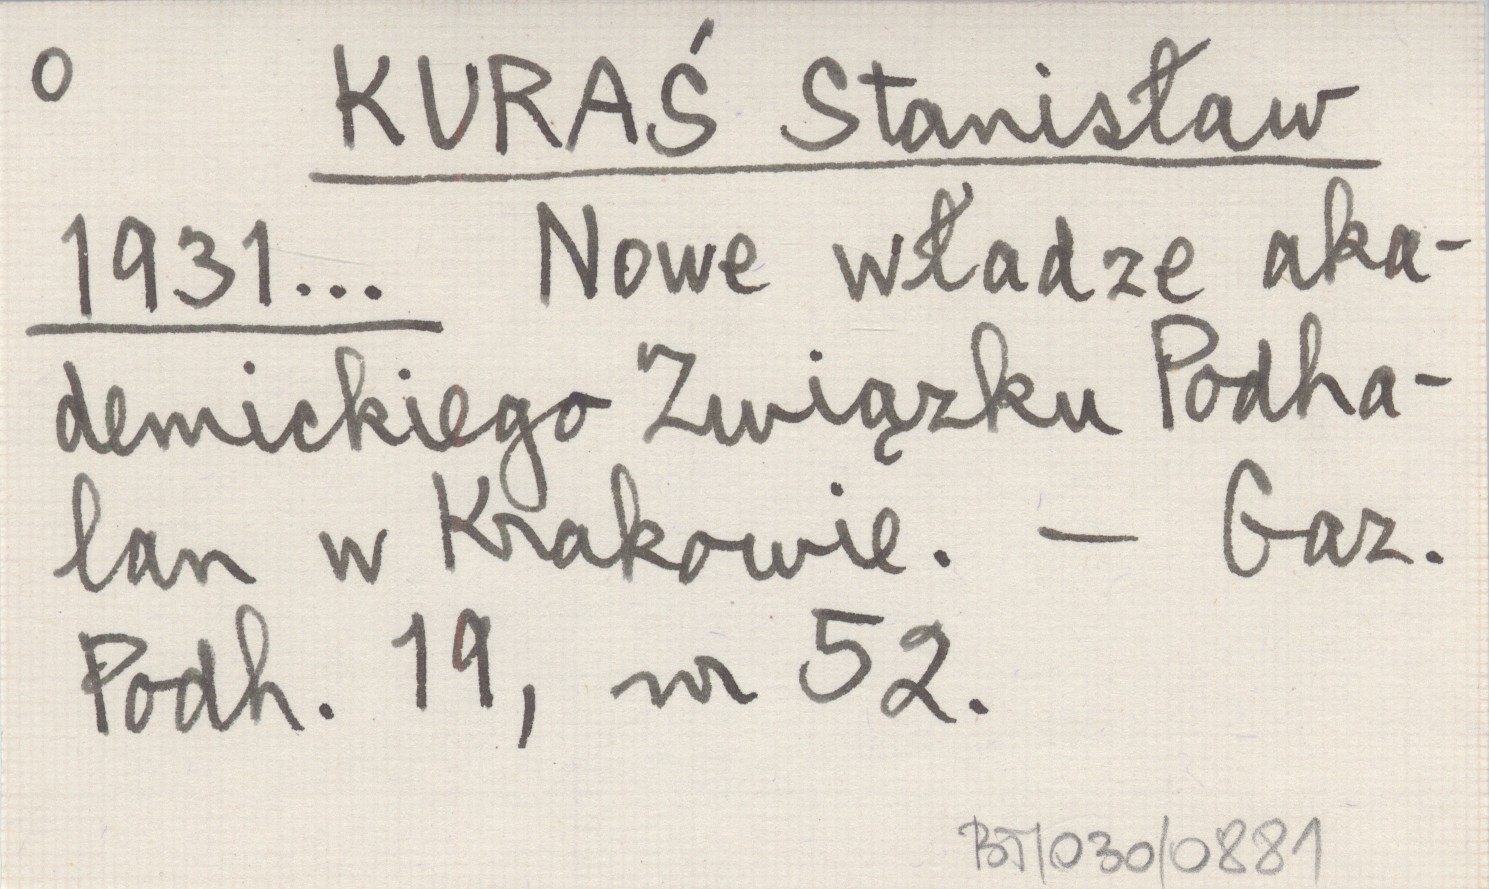 o KURAŚ Stanisław
1931... Nowe władze aka-
demickiego Związku Podha-
lan w Krakowie. — Gaz.
Podh. 19, nr 52.
BT/030/0881